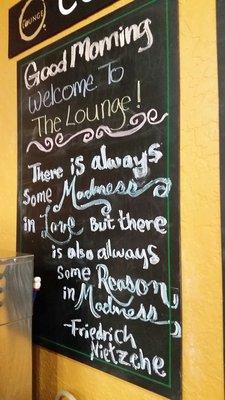 LOUNGE
Good Morning
Welcome To
The Lounge!
There is always
Some Madness
in Love But there
is also always
Some Reason
in Madness
-Friedrich
Nietzche